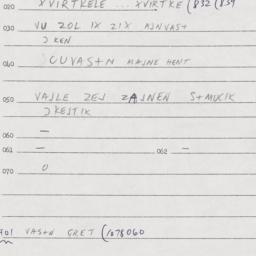 020 XVIRTKELE ... XVIRTKE (832 (834
030 VU ZOL IX ZIX AJNVAST
JKEN
040 JUVASTN MAJNE HENT
050 VAJLE ZEJ ZAJNEN S+MUCIK
JKESTIK
060 —
061 — 062 —
070 0
401 VASTN GRET (1078060